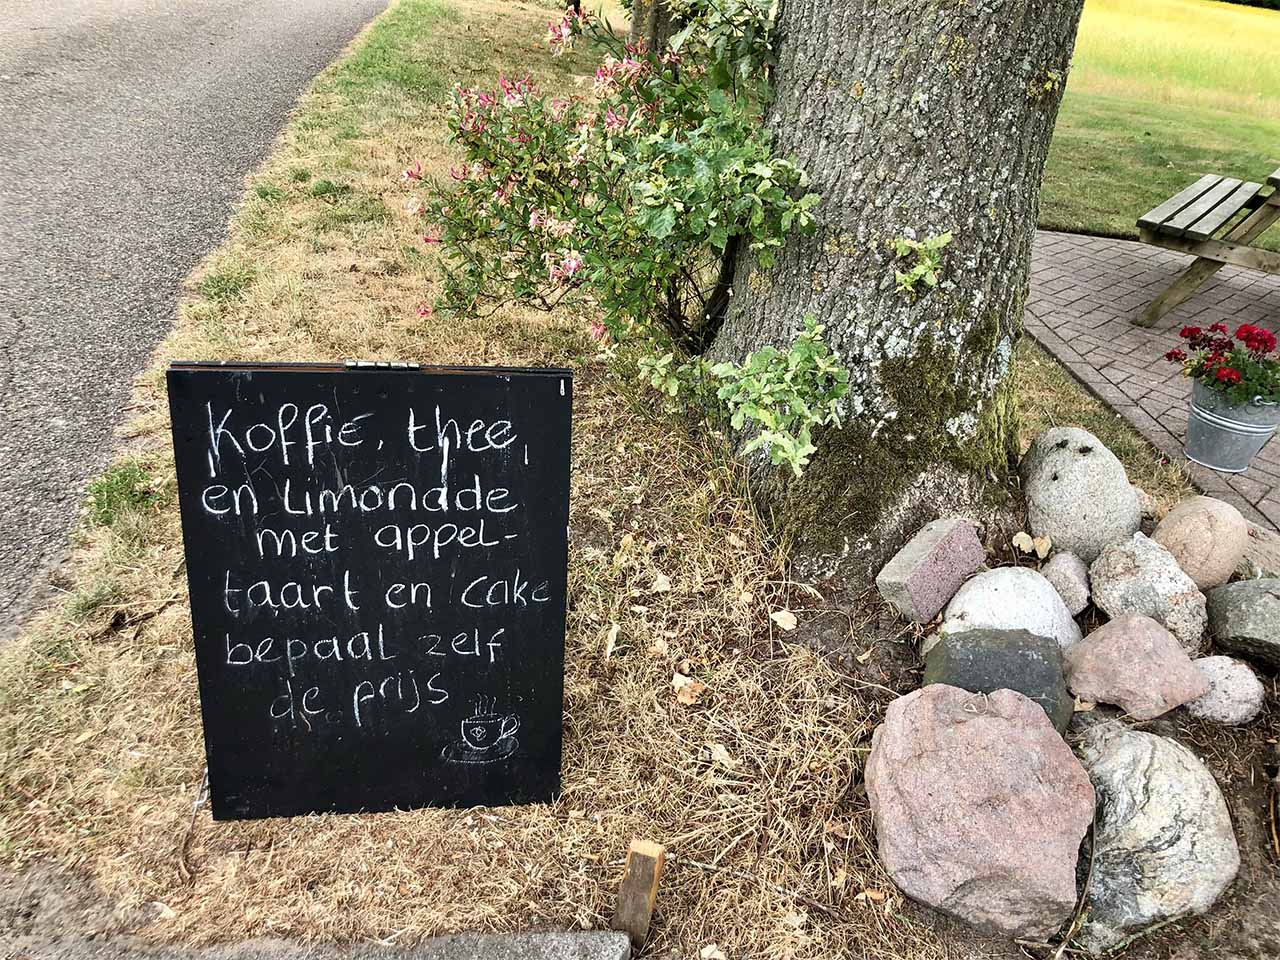 Koffie, thee,
en Limonade
met appel-
taart en cake
bepaal zelf
de prijs